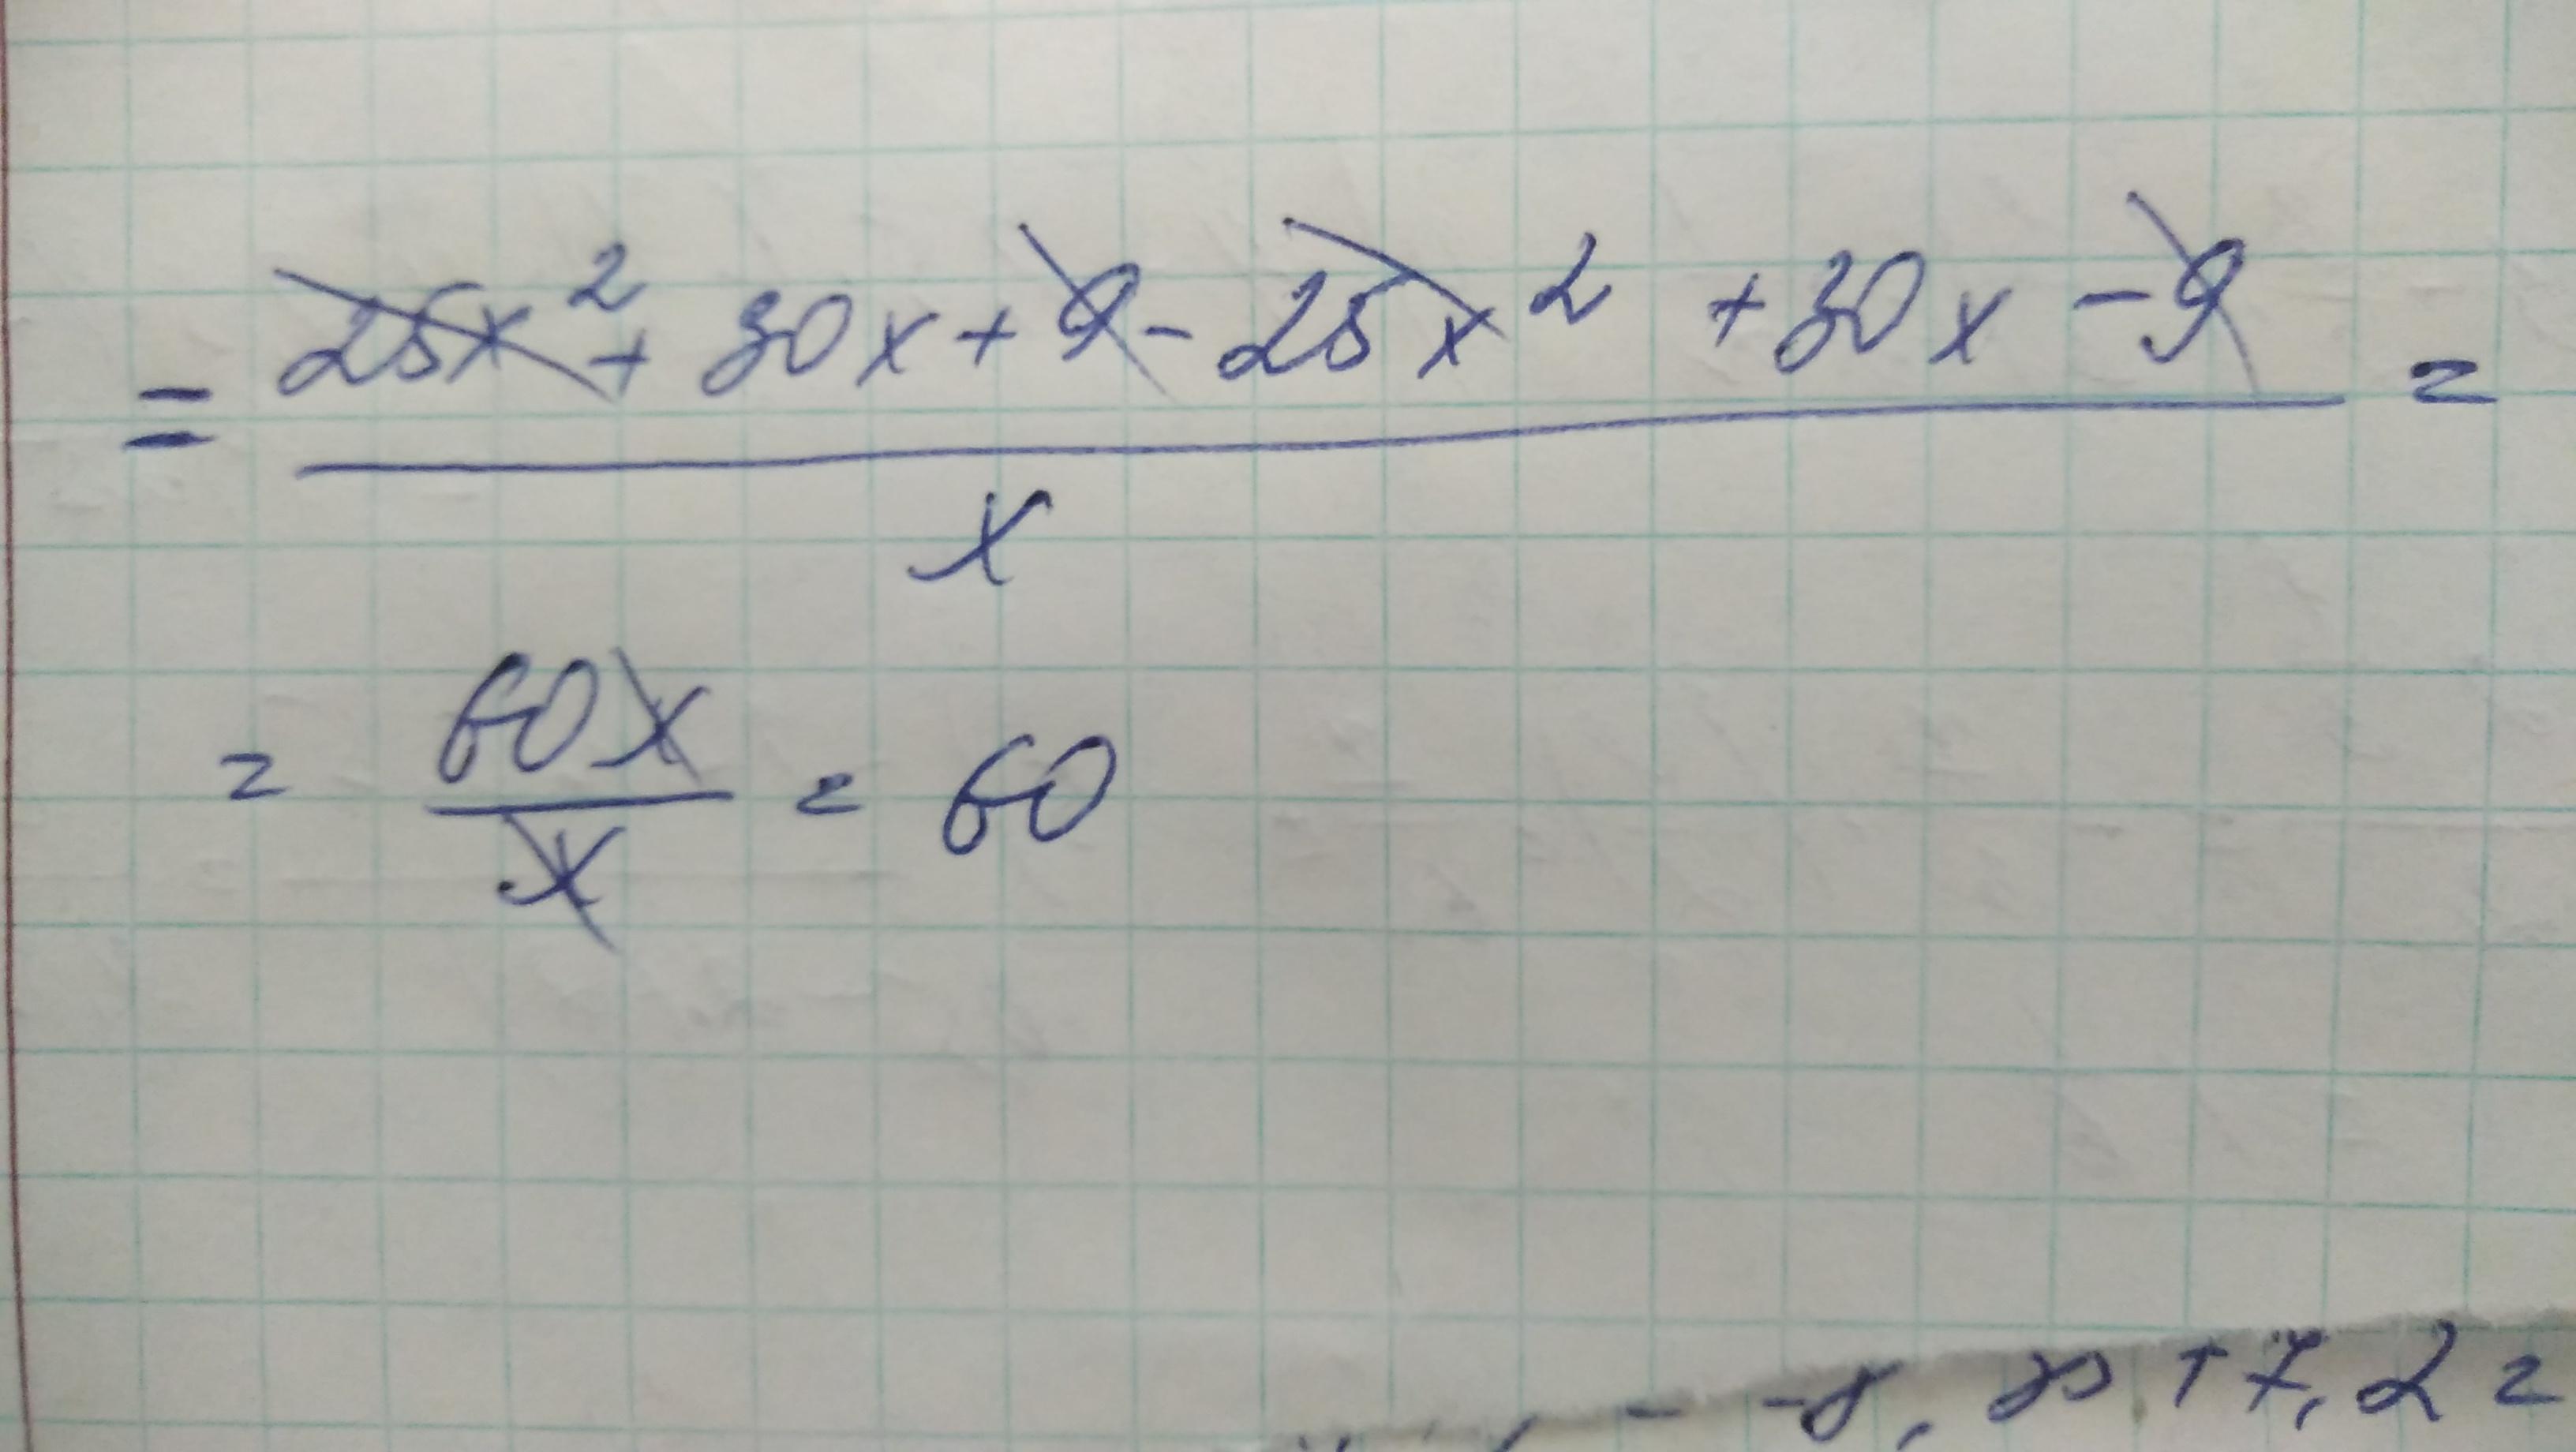 = 25x² + 30x + 9 - 25x² + 30x - 9 =
x
= 60x/x = 60
+7,2 =